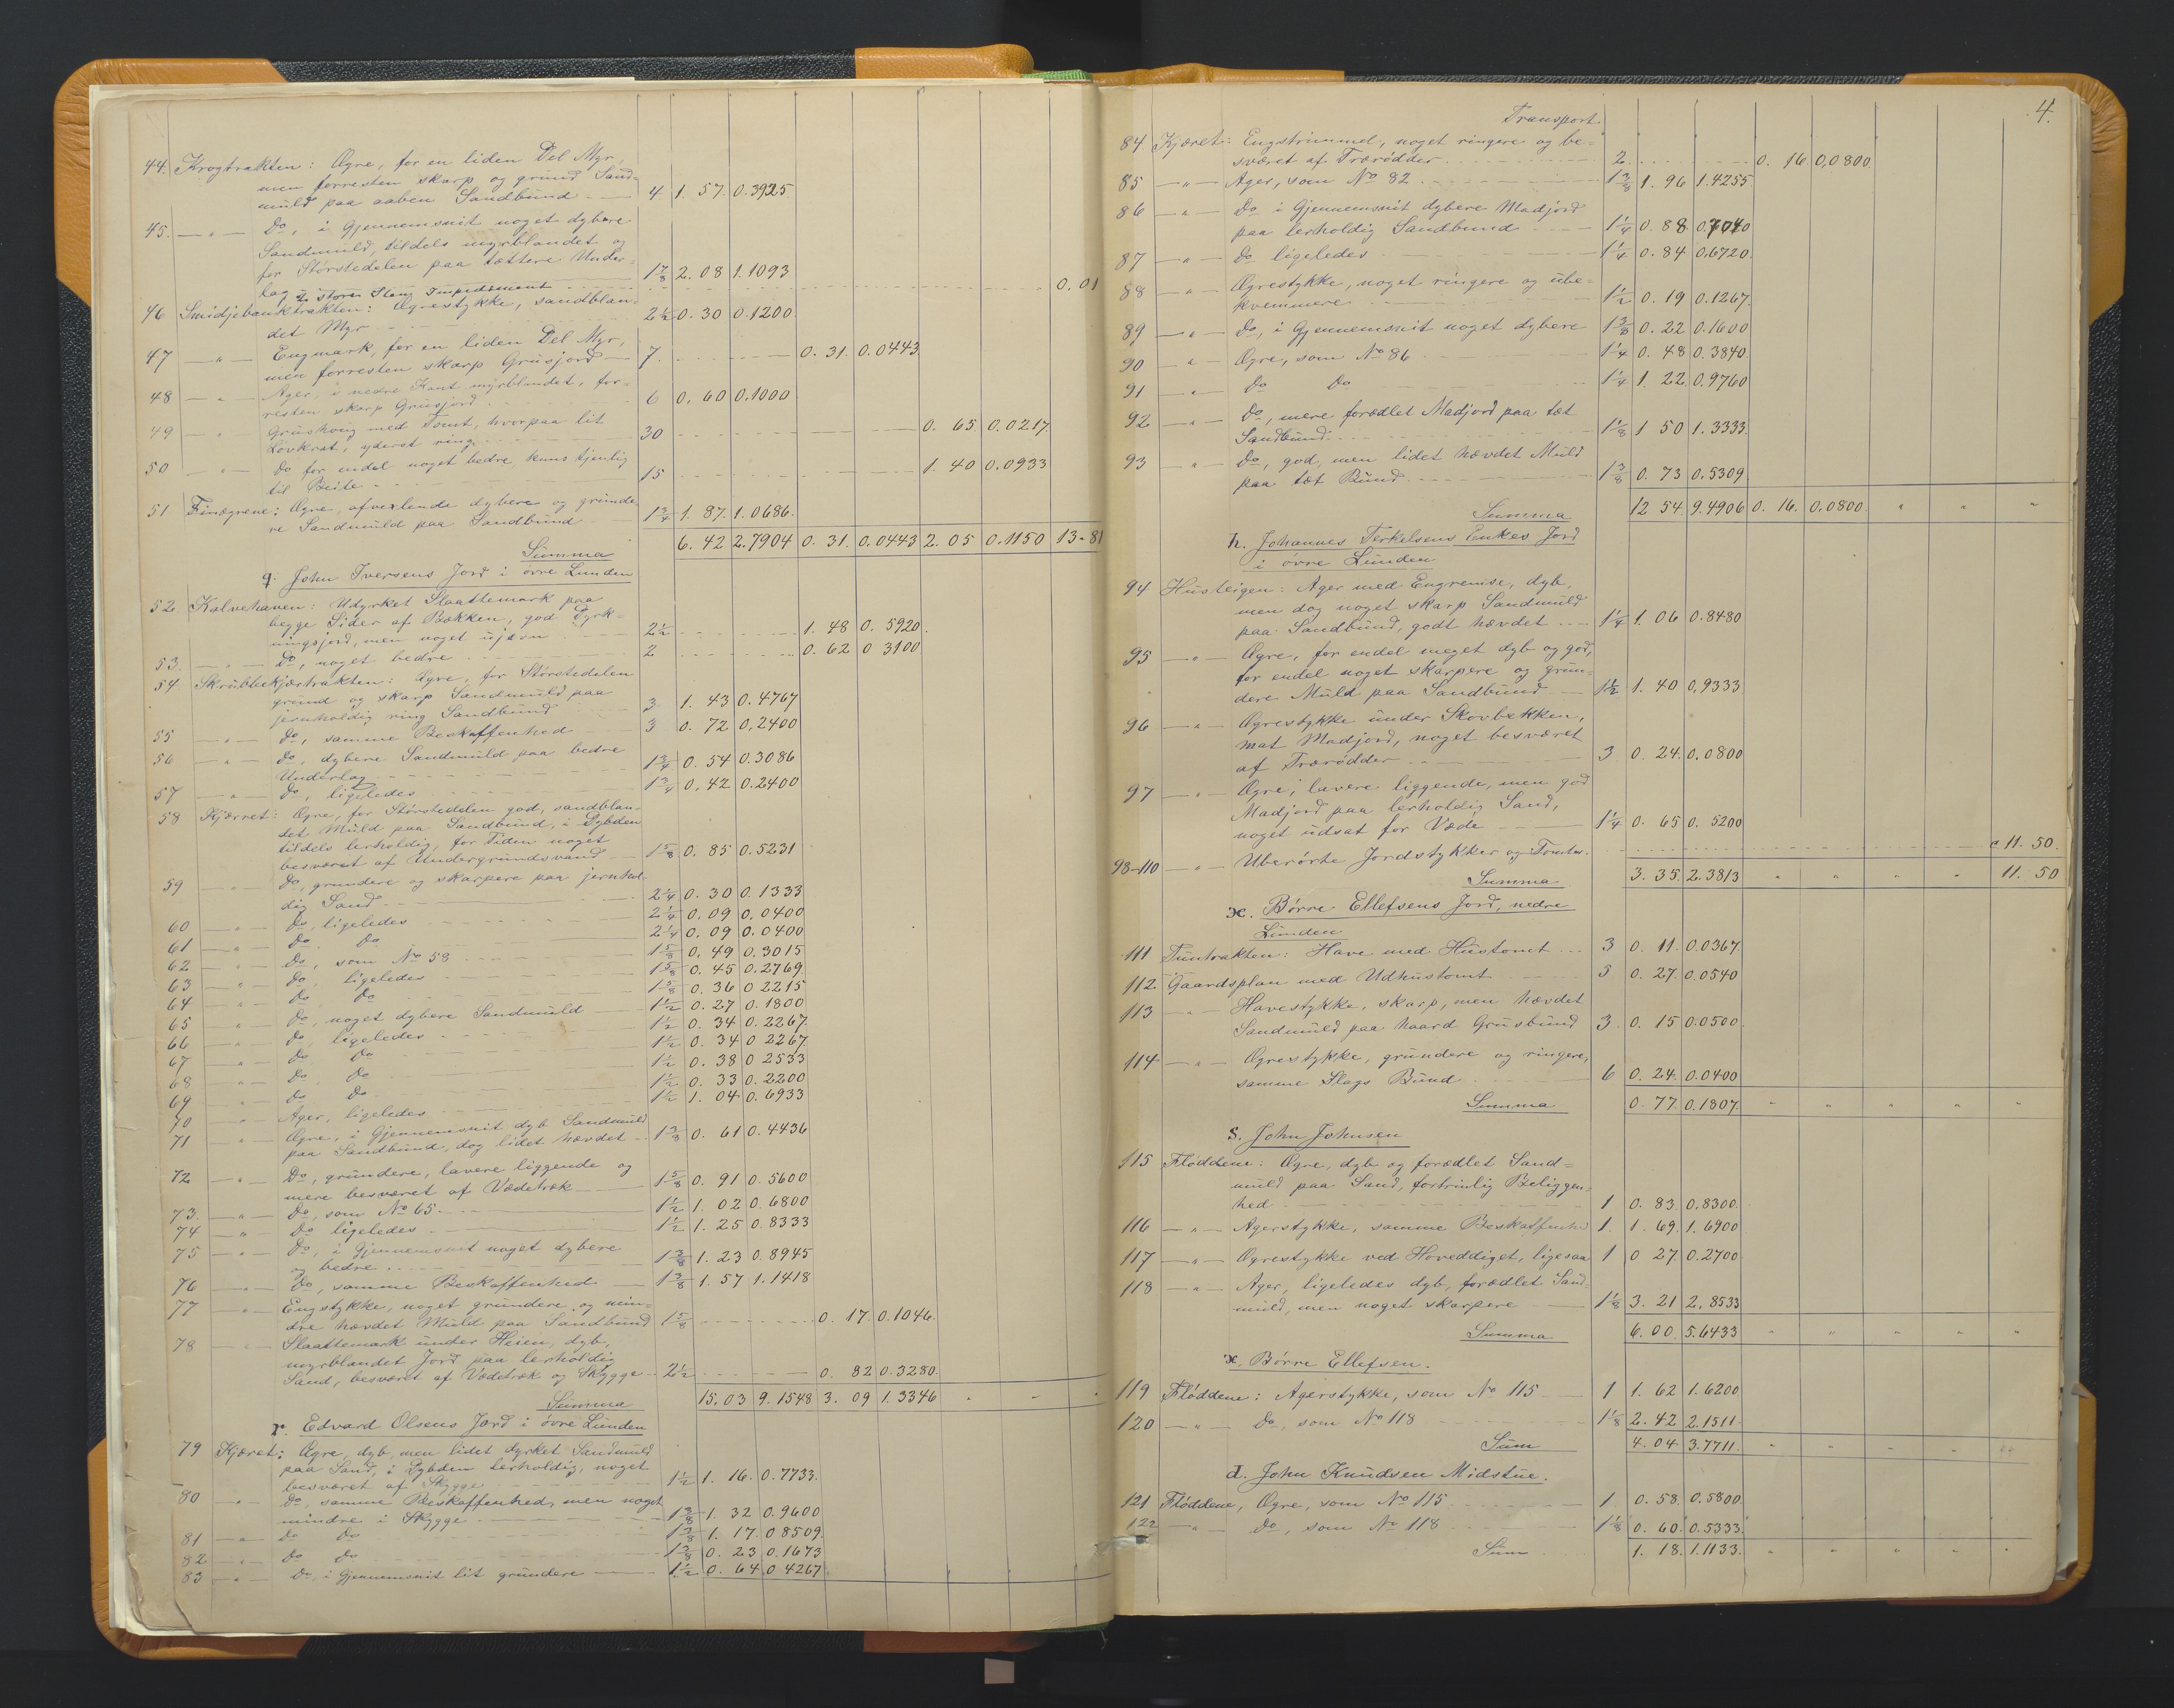 44. Krogtrakten: Ågre, for en liden Del Myr,
men forresten skarp og grund Sand=
muld paa aaben Sandbund 4 1. 57. 0.3925
45. — " — Do, i Gjennemsnit noget dybere
Sandmuld, tildels myrblandet og
for Størstedelen paa tættere Under=
lag, 2 store Sten Impediment 1 7/8 2. 08 1.1093 0.01
46 Smidjebanktrakten: Ågrestykke, sandblan=
det Myr 2 1/2 0. 30 0.1200
47 — " — Engmark, for en liden Del Myr,
men forresten skarp Grusjord 7. 0. 31. 0.0443
48 — " — Ager, i nedre Kant myrblandet, for=
resten skarp Grusjord 6 0. 60 0.1000
49 — " — Grushoug med Tomt, hvorpaa lit
Løvkrat, yderst ring 30 0. 65 0.0217.
50 — " — Do for endel noget bedre, kuns tjenlig
til Beite 15 1. 40 0.0933
51 Finægrene: Ågre, afvexlende dybere og grunde=
re Sandmuld paa Sandbund 1 3/4 1. 87. 1.0686.
Summa 6. 42 2.7904 0. 31. 0.0443 2. 05 0.1150 13.81
q. John Iversens Jord i øvre Lunden
52 Kalvehaven: Udyrket Slaattemark paa
begge Sider af Bækken, god Dyrk=
ningsjord, men noget ujævn 2 1/2 1. 48 0. 5920.
53. — " — Do, noget bedre 2 0. 62 0 3100
54 Skrubbekjærtrakten: Ågre, for Størstedelen
grund og skarp Sandmuld paa
jernholdig ring Sandbund 3 1. 43 0.4767
55 — " — Do, samme Beskaffenhed 3 0. 72 0.2400
56 — " — Do, dybere Sandmuld paa bedre
Underlag 1 3/4 0. 54 0.3086
57 — " — Do, ligeledes 1 3/4 0. 42 0.2400
58 Kjærret: Ågre, for Størstedelen god, sandblan=
det Muld paa Sandbund, i Dybden
tildels lerholdig, for Tiden noget
besværet af Undergrundsvand 1 5/8 0. 85 0.5231
59 — " — Do, grundere og skarpere paa jernhol=
dig Sand 2 1/4 0. 30 0.1333
60 — " — Do, ligeledes 2 1/4 0. 09 0.0400
61 — " — Do Do 2 1/4 0. 09 0.0400
62 — " — Do, som No 58 1 5/8 0. 49 0.3015
63 — " — Do, ligeledes 1 5/8 0. 45 0.2769
64 — " — Do Do 1 5/8 0. 36 0 2215
65 — " — Do, noget dybere Sandmuld 1 1/2 0. 27 0.1800
66 — " — Do, ligeledes 1 1/2 0. 34 0.2267.
67 — " — Do Do 1 1/2 0. 34 0 2267
68 — " — Do Do 1 1/2 0. 38 0 2533
69 — " — Do Do 1 1/2 0. 33 0.2200
70 — " — Ager, ligeledes 1 1/2 1. 04 0.6933
71 — " — Ågre, i Gjennemsnit dyb Sandmuld
paa Sandbund, dog lidet hævdet 1 3/8 0. 61 0.4436
72 — " — Do, grundere, lavere liggende og
mere besværet af Vædetræk 1 5/8 0. 91 0.5600
73. — " — Do, som No 65 1 1/2 1. 02 0.6800
74 — " — Do ligeledes 1 1/2 1. 25 0.8333
75 — " — Do, i Gjennemsnit noget dybere
og bedre 1 3/8 1. 23 0.8945
76 — " — Do, samme Beskaffenhed 1 3/8 1. 57 1.1418
77 — " — Engstykke, noget grundere og min=
dre hævdet Muld paa Sandbund 1 5/8 0. 17. 0.1046.
78 — " — Slaattemark under Heien, dyb,
myrblandet Jord paa lerholdig
Sand, besværet af Vædetræk og Skygge 2 1/2 0. 82 0.3280.
Summa 15. 03 9.1548 3. 09 1.3346 " " "
r. Edvard Olsens Jord i øvre Lunden
79 Kjæret: Ågre, dyb, men lidet dyrket Sandmuld
paa Sand, i Dybden lerholdig, noget
besværet af Skygge 1 1/2 1. 16. 0.7733.
80 — " — Do, samme Beskaffenhed, men noget
mindre i Skygge 1 3/8 1. 32 0.9600
81 — " — Do Do 1 3/8 1. 17. 0 8509.
82 — " — Do Do 1 3/8 0. 23 0.1673
83 — " — Do, i Gjennemsnit lit grundere 1 1/2 0. 64 0 4267.
4.
Transport
84 Kjæret: Engstrimmel, noget ringere og be=
sværet af Trærødder 2. 0. 16. 0.0800
85 — " — Ager, som No 82 1 3/8 1. 96 1.4255
86 — " — Do i Gjennemsnit dybere Madjord
paa lerholdig Sandbund 1 1/4 0. 88. 0.7040
87 — " — Do ligeledes 1 1/4 0. 84 0.6720.
88 — " — Ågrestykke, noget ringere og ube=
kvemmere 1 1/2 0. 19 0.1267.
89 — " — Do, i Gjennemsnit noget dybere 1 3/8 0. 22 0.1600
90 — " — Ågre, som No 86 1 1/4 0. 48 0.3840.
91 — " — Do Do 1 1/4 1. 22. 0.9760
92 — " — Do, mere forædlet Madjord paa tæt
Sandbund 1 1/8 1 50 1.3333
93 — " — Do, god, men lidet hævdet Muld
paa tæt Bund 1 3/8 0. 73 0.5309
Summa 12 54. 9.4906 0. 16. 0.0800 " " "
h. Johannes Terkelsens Enkes Jord
i øvre Lunden
94 Husteigen: Ager med Engremise, dyb,
men dog noget skarp Sandmuld
paa Sandbund, godt hævdet 1 1/4 1. 06 0.8480
95 — " — Ågre, for endel meget dyb og god,
for endel noget skarpere og grun=
dere Muld paa Sandbund 1 1/2 1. 40 0.9333
96 — " — Ågrestykke under Skovbækken,
mat Madjord, noget besværet
af Trærødder 3 0. 24. 0.0800
97 — " — Ågre, lavere liggende, men god
Madjord paa lerholdig Sand,
noget udsat for Væde 1 1/4 0. 65 0. 5200
98-110 — " — Uberørte Jordstykker og Tomter. c 11. 50.
Summa 3. 35. 2.3813 " " " " 11. 50
x. Børre Ellefsens Jord, nedre
Lunden
111 Tuntrakten: Have med Hustomt 3 0. 11. 0.0367.
112. Gaardsplan med Udhustomt 5 0. 27. 0.0540
113 — " — Havestykke, skarp, men hævdet
Sandmuld paa haard Grusbund 3. 0. 15 0.0500.
114 — " — Ågrestykke, grundere og ringere,
samme Slags Bund 6 0. 24. 0.0400
Summa 0. 77. 0.1807. " " " " "
s. John Johnsen
115 Fløddene: Ågre, dyb og forædlet Sand=
muld paa Sand, fortrinlig Beliggen=
hed 1 0. 83. 0.8300.
116 — " — Agerstykke, samme Beskaffenhd 1. 1. 69. 1.6900
117 — " — Ågrestykke ved Hoveddiget, ligesaa 1 0 27. 0.2700
118 — " — Ager, ligeledes dyb, forædlet Sand=
muld, men noget skarpere 1 1/8 3. 21 2.8533
Summa 6. 00. 5.6433 " " " " "
x. Børre Ellefsen.
119 Fløddene: Agerstykke, som No 115 1 1. 62 1.6200
120 — " — Do, som No 118 1 1/8 2. 42 2.1511
Sum 4. 04 3.7711. " " " " "
d. John Knudsen Midstue.
121 Fløddene, Ågre, som No 115 1. 0. 58. 0.5800.
122 — " — Do, som No 118 1 1/8 0. 60. 0.5333.
Sum 1. 18. 1.1133. " " " " "